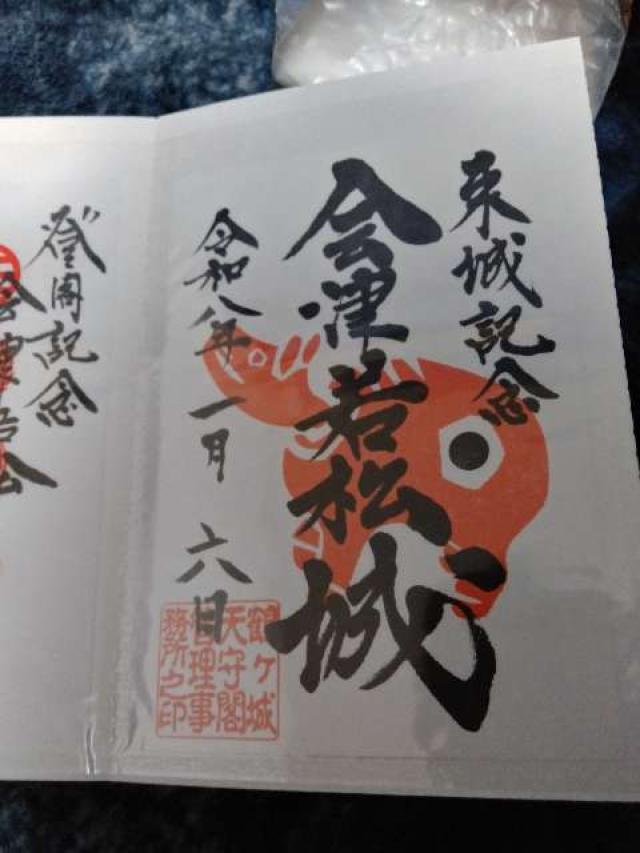 来城記念
会津若松城
令和八年 一月 六日
鶴ヶ城
天守閣
管理事
務所之印
登閣記念